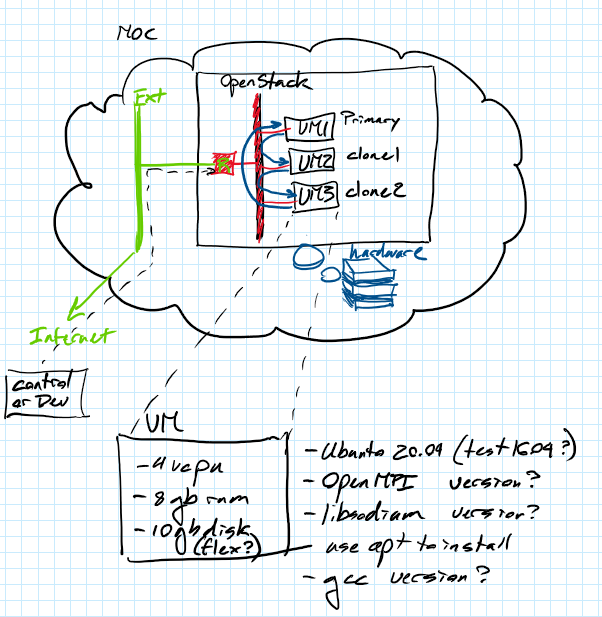 MOC
OpenStack
Ext
VM1 Primary
VM2 clone1
VM3 clone2
hardware
Internet
control
or Dev
VM
- 4 vcpu
- 8 gb ram
- 10 gb disk
(flex?)
- Ubuntu 20.04 (test 1604?)
- OpenMPI version?
- libsodium version?
- use apt to install
- gcc version?